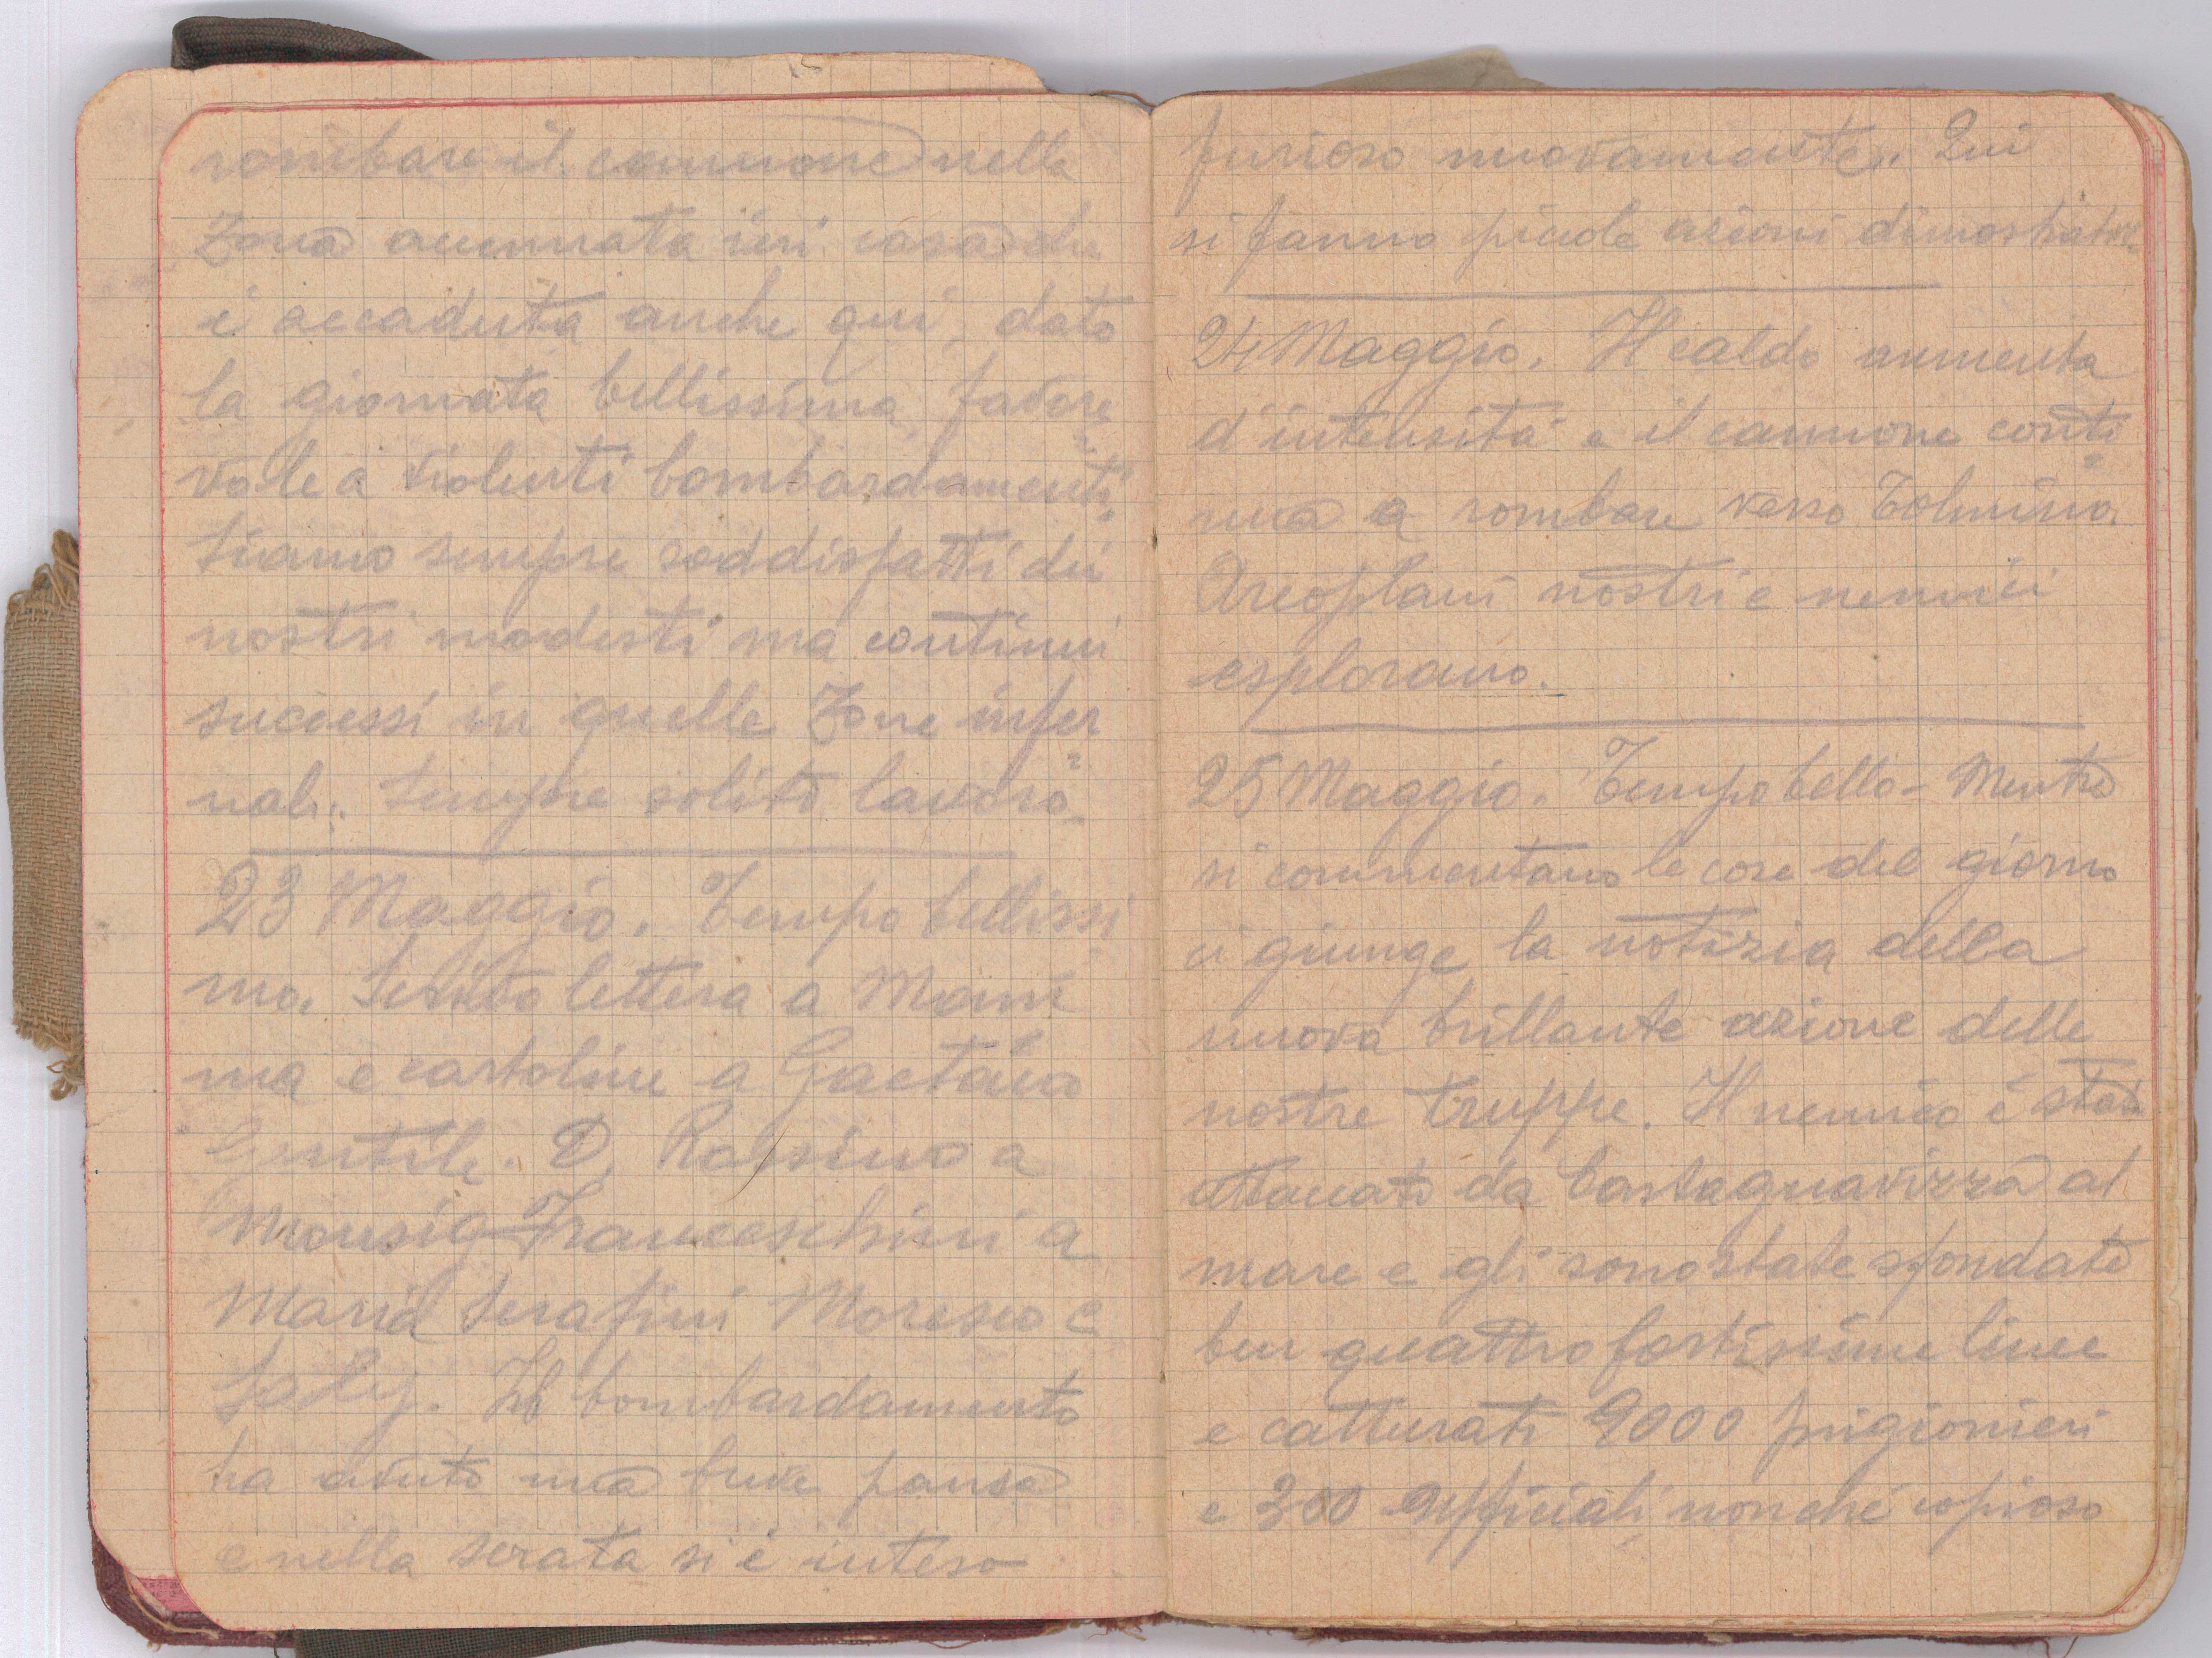 rombare il cannone nella
zona accennata ieri cosa che
è accaduta anche qui, dato
la giornata bellissima, favore=
vole a violenti bombardamenti.
Siamo sempre soddisfatti dei
nostri modesti ma continui
successi in quelle zone infer=
nali. Sempre solito lavoro.
23 Maggio. Tempo bellissi
mo. Scritto lettera a Mam
ma e cartoline a Gaetano
Gentile. D. Rossino a
Monsig Franceschini a
Maria Serafini Moresco e
Il bombardamento
ha avuto una breve pausa
e nella serata si è inteso
furioso nuovamente. Qui
si fanno piccole azioni dimostrative.
24 Maggio. Il caldo aumenta
d'intensità e il cannone conti=
nua a rombare verso Tolmino.
Areoplani nostri e nemici
esplorano.
25 Maggio. Tempo bello - Mentre
si commentano le cose del giorno
ci giunge la notizia della
nuova brillante azione delle
nostre truppe. Il nemico è stato
attaccato da Castagnavizza al
mare e gli sono state sfondate
ben quattro fortissime linee
e catturati 9000 prigionieri
e 300 ufficiali, nonché copioso